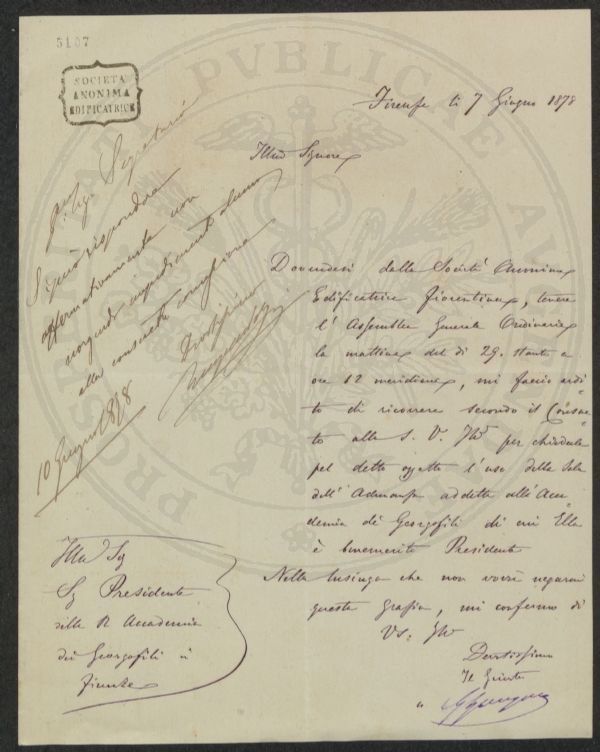 5107
SOCIETÀ
ANONIMA
EDIFICATRICE
Firenze li 7 Giugno 1878
Illmo Signore
Al Sig. Segretario
Si può rispondere
affermativamente non
sorgendo impedimenti alcuno
alla consueta
Devotissimo
10 Giugno 1878
Dovendosi dalla Società Anonima
Edificatrice Fiorentina, tenere
l'Assemblea Generale Ordinaria
la mattina del dì 29. stante a
ore 12 meridiane, mi faccio ardi
to di ricorrere secondo il Consue
to alla S. V. Illma per chiederle
pel detto oggetto l'uso della Sala
dell'Adunanza addetta all'Acca
demia dè Georgofili di cui Ella
è benemerito Presidente
Nella lusinga che non vorrà negarmi
questa grazia, mi confermo di
VS. Illma
Devotissimo
Il
Illmo Sig
Sig Presidente
della R Accademia
dei Georgofili in
Firenze
PROSPERITATI PUBLICAE AU